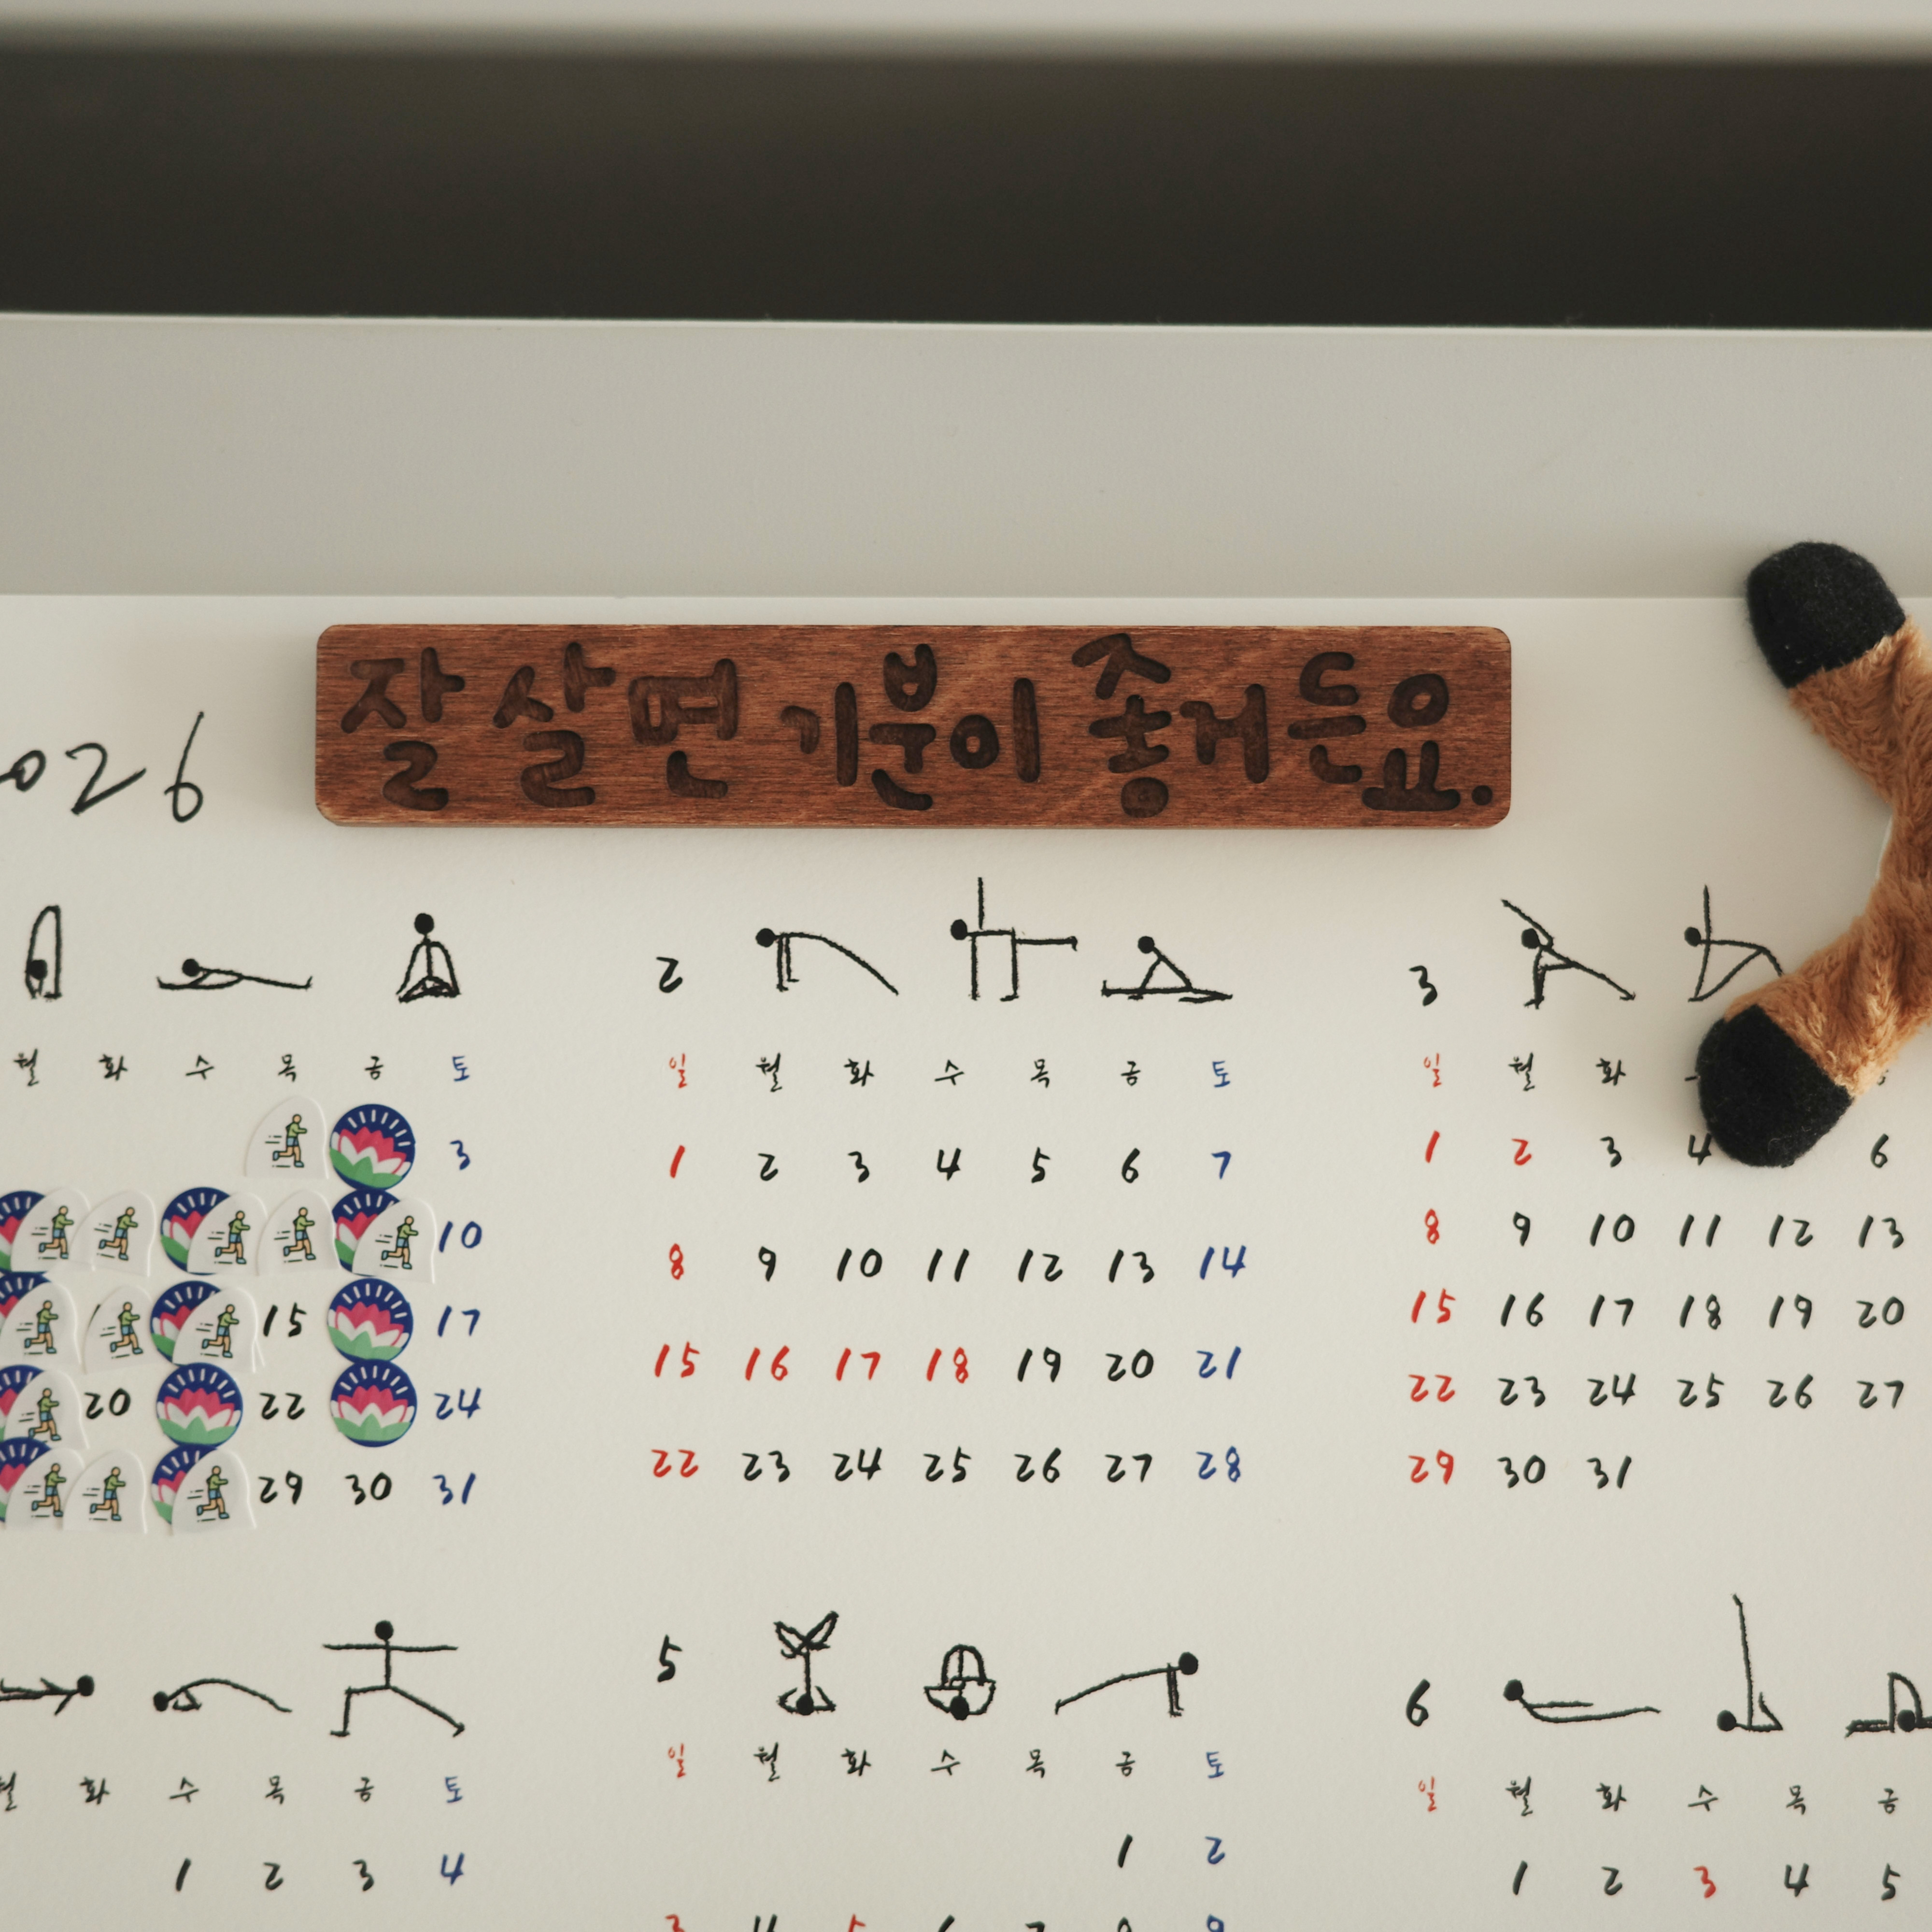 잘 살면 기분이 좋거든요.
026
월 화 수 목 금 토
3
10
15 17
20 22 24
29 30 31
2
일 월 화 수 목 금 토
1 2 3 4 5 6 7
8 9 10 11 12 13 14
15 16 17 18 19 20 21
22 23 24 25 26 27 28
3
일 월 화
1 2 3 4 6
8 9 10 11 12 13
15 16 17 18 19 20
22 23 24 25 26 27
29 30 31
월 화 수 목 금 토
1 2 3 4
5
일 월 화 수 목 금 토
1 2
6
일 월 화 수 목 금
1 2 3 4 5